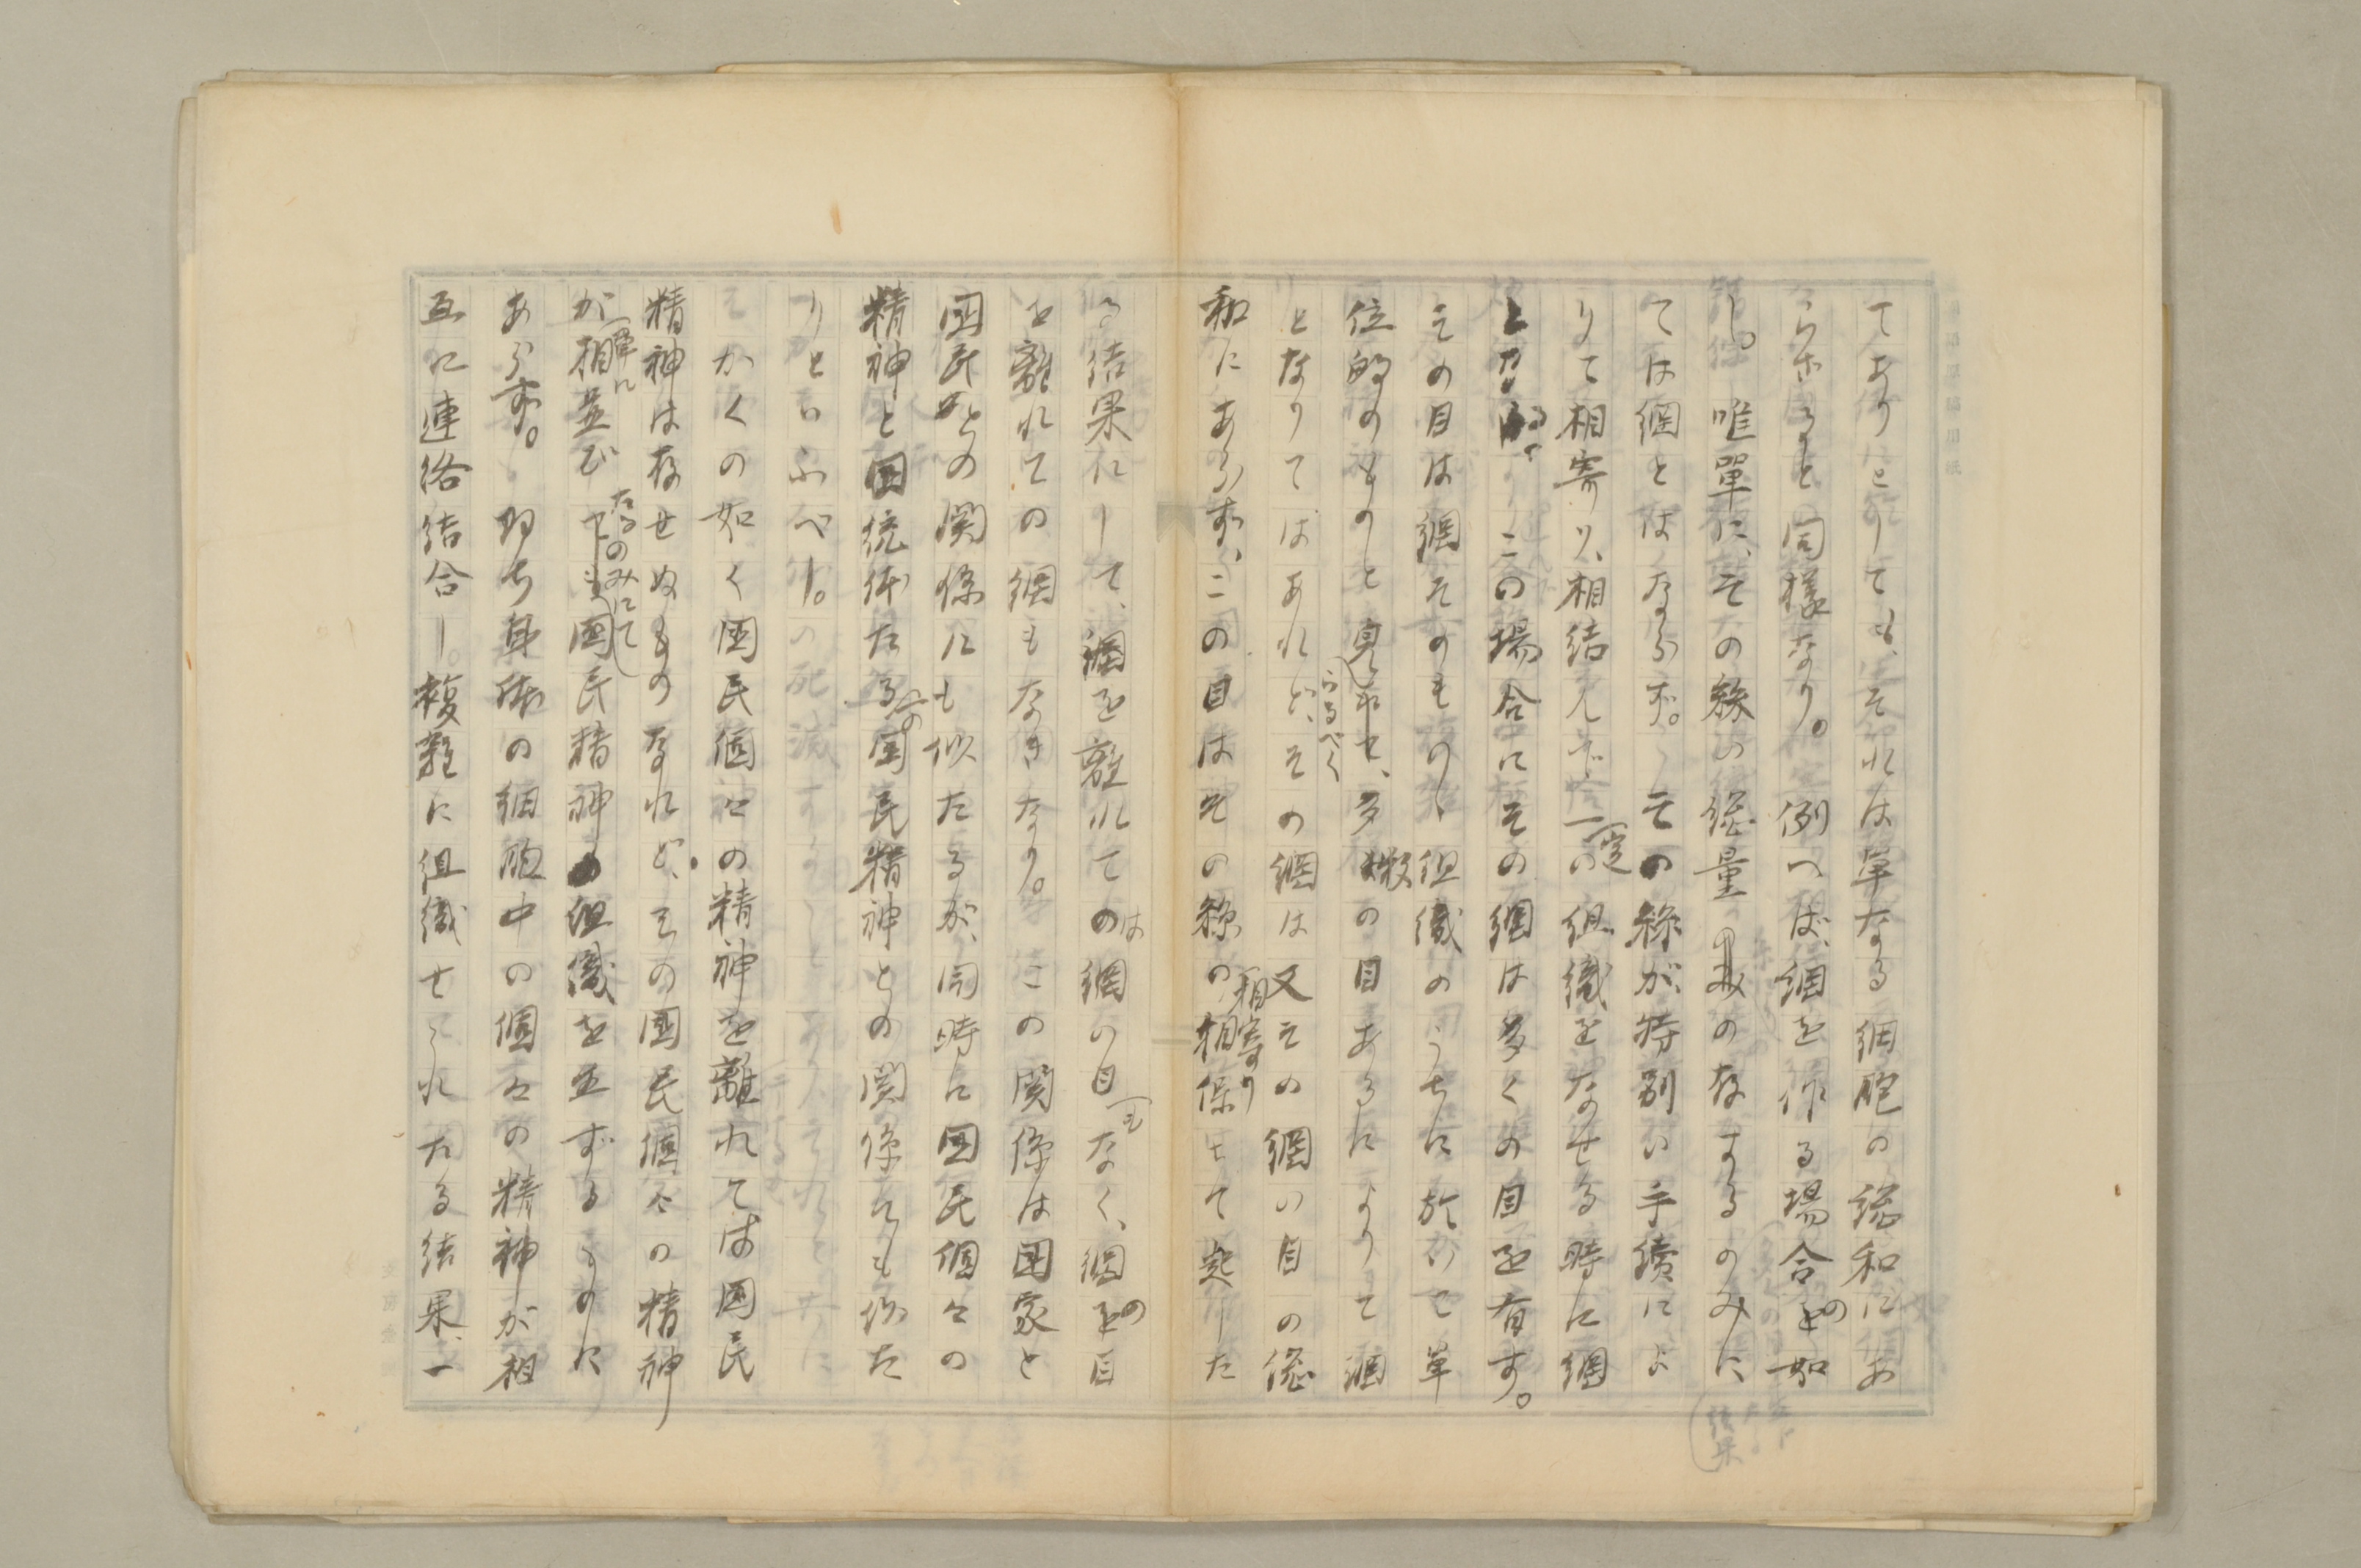 てありとりても、それは単なる細胞の総和にあ
らざること同様なり。例へば、網を作る場合の如
し。唯単に、その糸の総量のみの存するのみに
ては網とはならず。その糸が特別の手続によ
りて相寄り、相結んで一定の組織をなせる時に網
となる。この場合にその網は多くの目を有す。
その目は網そのものゝ組織のうちに於いて単
位的のものと見らるべく、多数の目あるによりて網
となりてはあれど、その網は又その網の目の総
和にあらず、この目はその糸の相寄り相保ちて起した
る結果にして、網を離れては網の目もなく、網の目
を離れての網もなきなり。この関係は国家と
国民との関係にも似たるが、同時に国民個々の
精神と国統体たる国民精神との関係にも似た
りといふべし。
かくの如く国民個々の精神を離れては国民
精神は存せぬものなれど、その国民個々の精神
が単に相並びたるのみにて国民精神の組織を生ずるものに
あらず。即ち身体の細胞中の個々の精神が相
互に連絡結合し。複雑に組織せられたる結果、一